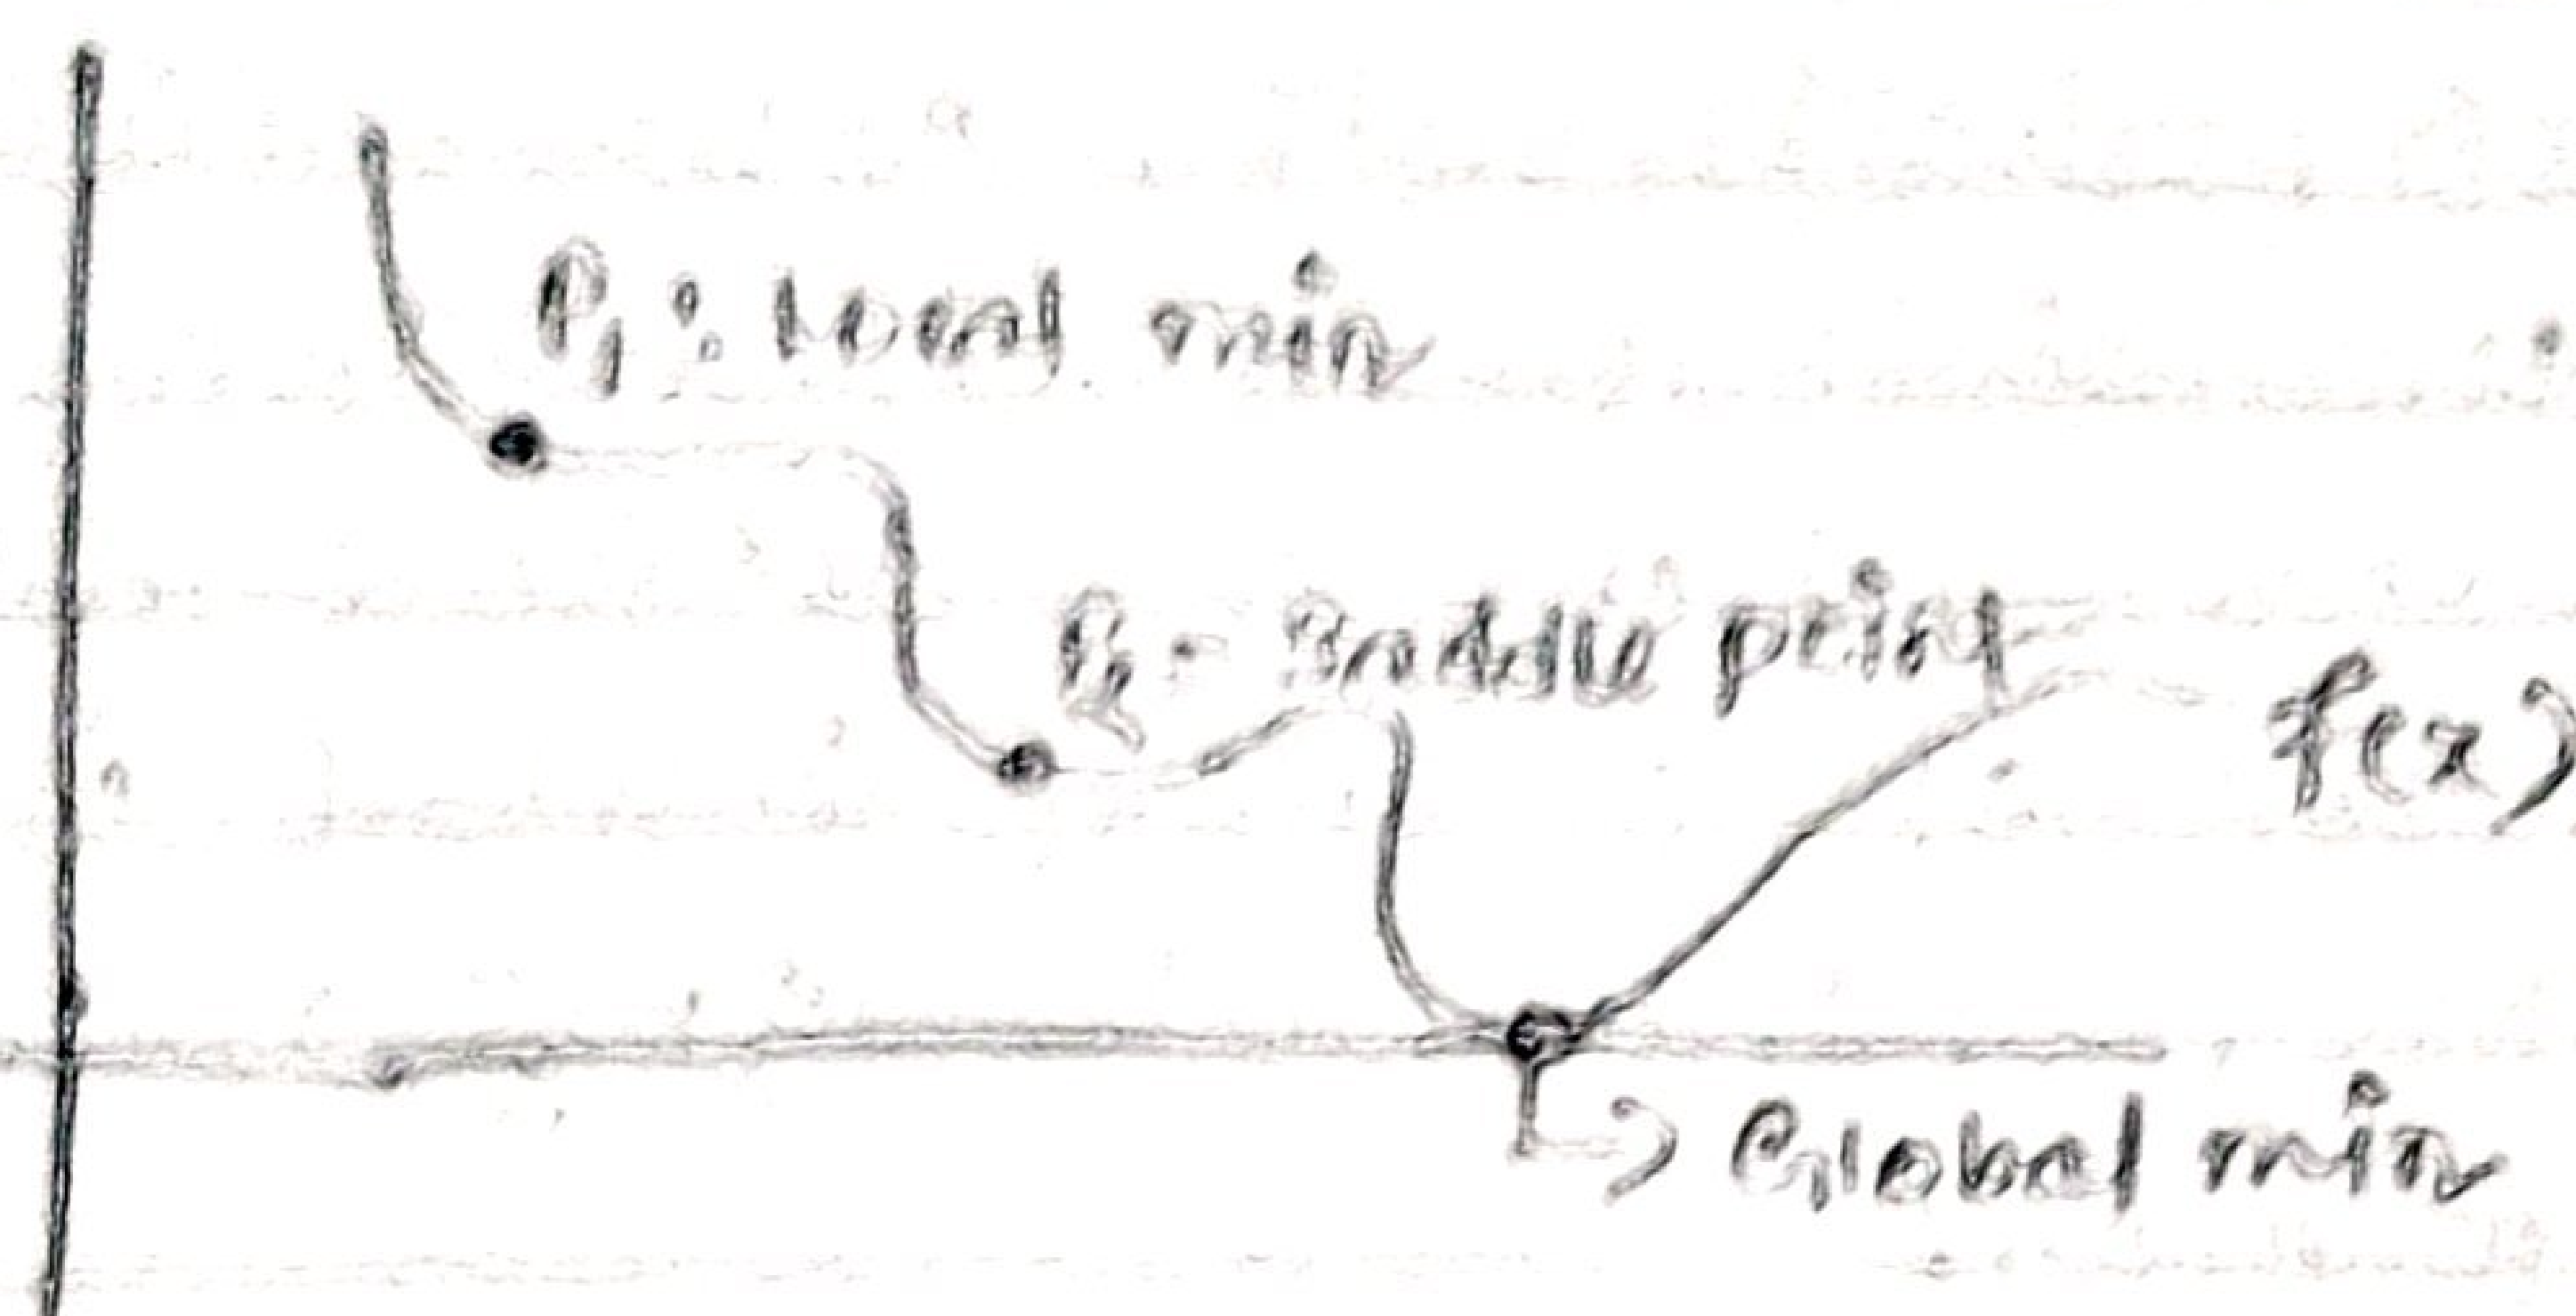 P₁: Local min
P₂ - Saddle point
f(x)
Global min